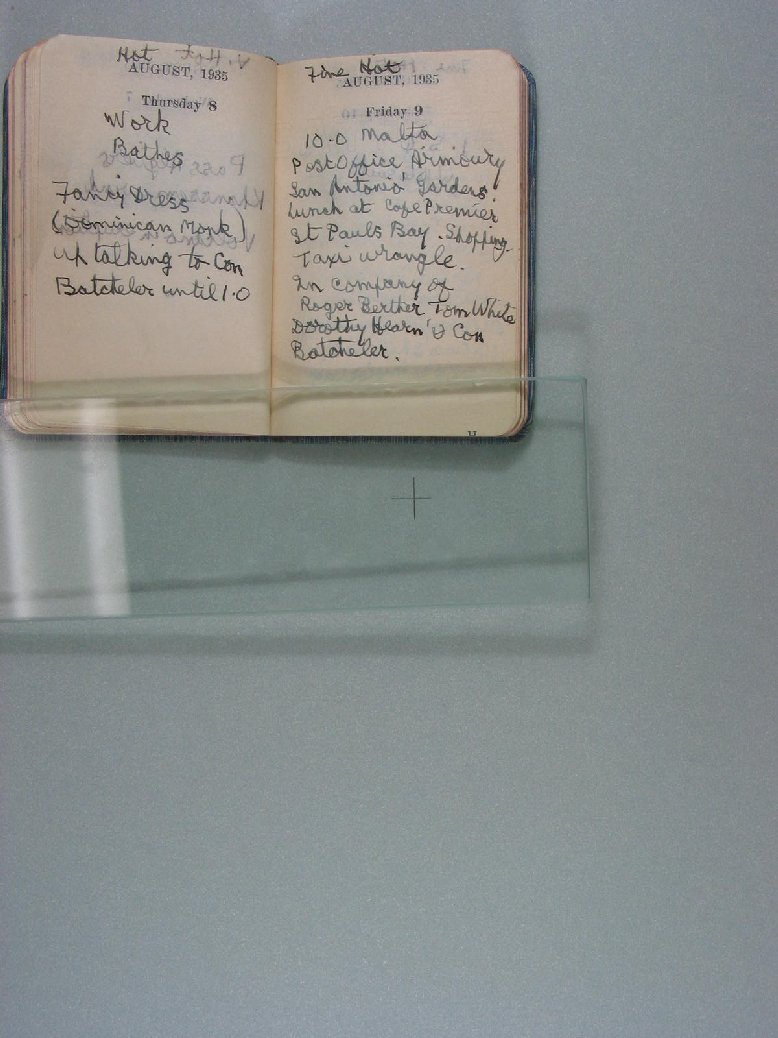 Hot
AUGUST, 1935
Thursday 8
Work
Bathes
Fancy Dress
(Dominican Monk)
up talking to Con
Batcheler until 1.0
Fine Hot
AUGUST, 1935
Friday 9
10.0 Malta
Post Office Armoury
San Antonio Gardens.
Lunch at Cafe Premier
St Pauls Bay. Shopping.
Taxi wrangle.
In company of
Roger Berther Tom White
Dorothy Hearn & Con
Batcheler.
H